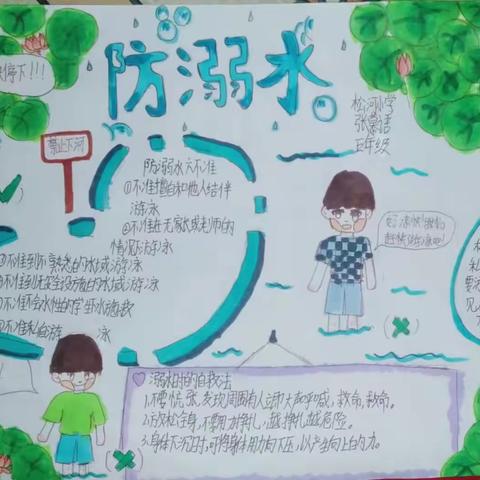 停下!!!
防溺水
松河小学
五年级
禁止下河
防溺水六不准
①不准擅自和他人结伴
游泳
②不准在无家长或老师的
情况下游泳
③不准到不熟悉的水域游泳
不准到无安全设施的水域游泳
不准不会水性的学生下水施救
不准私自游泳
溺水时的自救法
1.不要慌张,发现周围有人立即大声呼喊,救命,救命。
2.放松全身,不要用力挣扎,越挣扎越危险。
3.身体下沉时,可将身体用力向下压,以产生向上的力。